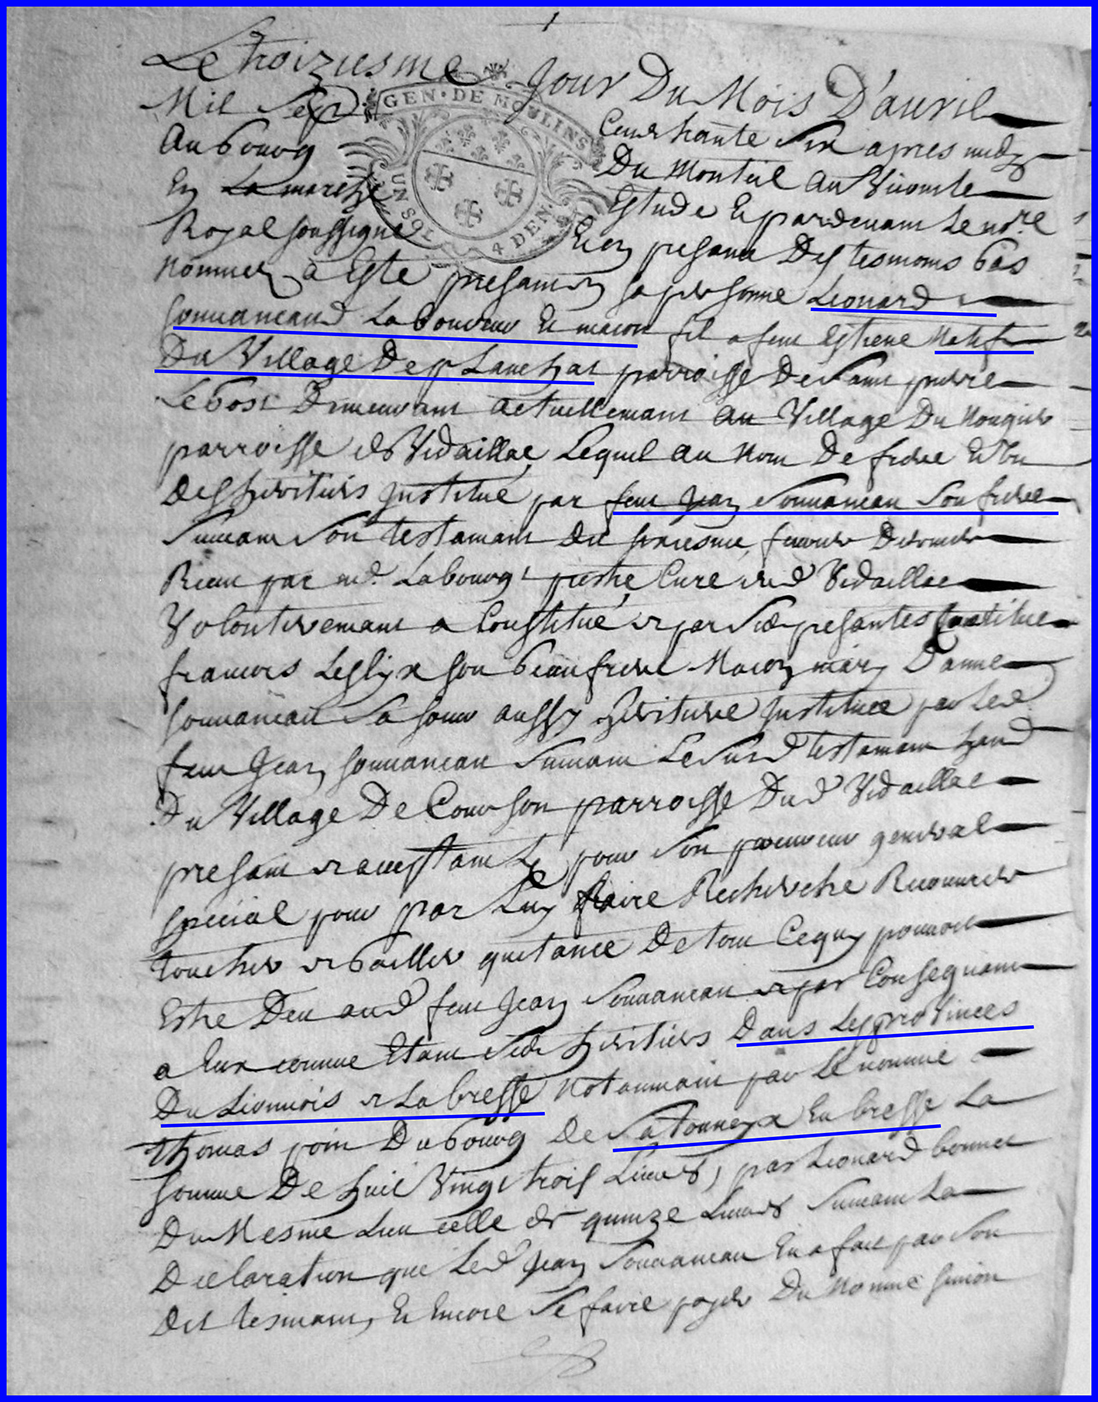 Le troiziesme Jour Du Mois D'auril
Mil Sept Cens trante Six apres midy
Au bourg Du Monteil au Vicomte
En La marche Estude Et pardevant Le nore
Royal soussigné Et en presance Des tesmoins bas
Nommes a Este presant en sa personne Leonard
Jouanneaud Laboureur Et macon fil a feu Estiene Natif
Du Village De planchat parroisse De Saint pierre
Le bost Demeurant actuellemant au Village Du
parroisse de Vidaillac Lequel au Nom De frere Et Un
Des heritiers Institué par feu Jean Jouaneau Son frere
Suivant Son testamant Du fevrier Dernier
Receu par Labourg pretre Curé dud Vidaillac
Volontieremant a Constitué et par Ses presantes Constitue
francois Leglize son beaufrere Macon mary D'anne
Jouaneau Sa soeur aussy heritiere Instituee par Led
feu Jean Jouaneau Suivant Le Susd testamant
Du Village De Courson parroisse Dud Vidaillac
presant et acceptant pour Son procureur general
special pour par Luy faire Recherche Recouvrer
toucher et bailler quitance De tout Cequy pouvoit
Estre Deu aud feu Jean Jouaneau et par Consequant
a Eux comme Etant Ses heritiers Dans Les provinces
Du Lionnois et La bresse Notammant par Le nommé
thomas Du bourg De Satonnex En bresse La
somme De huit Vingt trois Livres, par Leonard bonnet
Du Mesme Lieu celle de quinze Livres Suivant La
Declaration que Led Jean Jouaneau En a fait par Son
Dit tesmant, Et Encore Se faire payer Du Nommé
GEN · DE MOULINS
UN SOL 4 DEN.